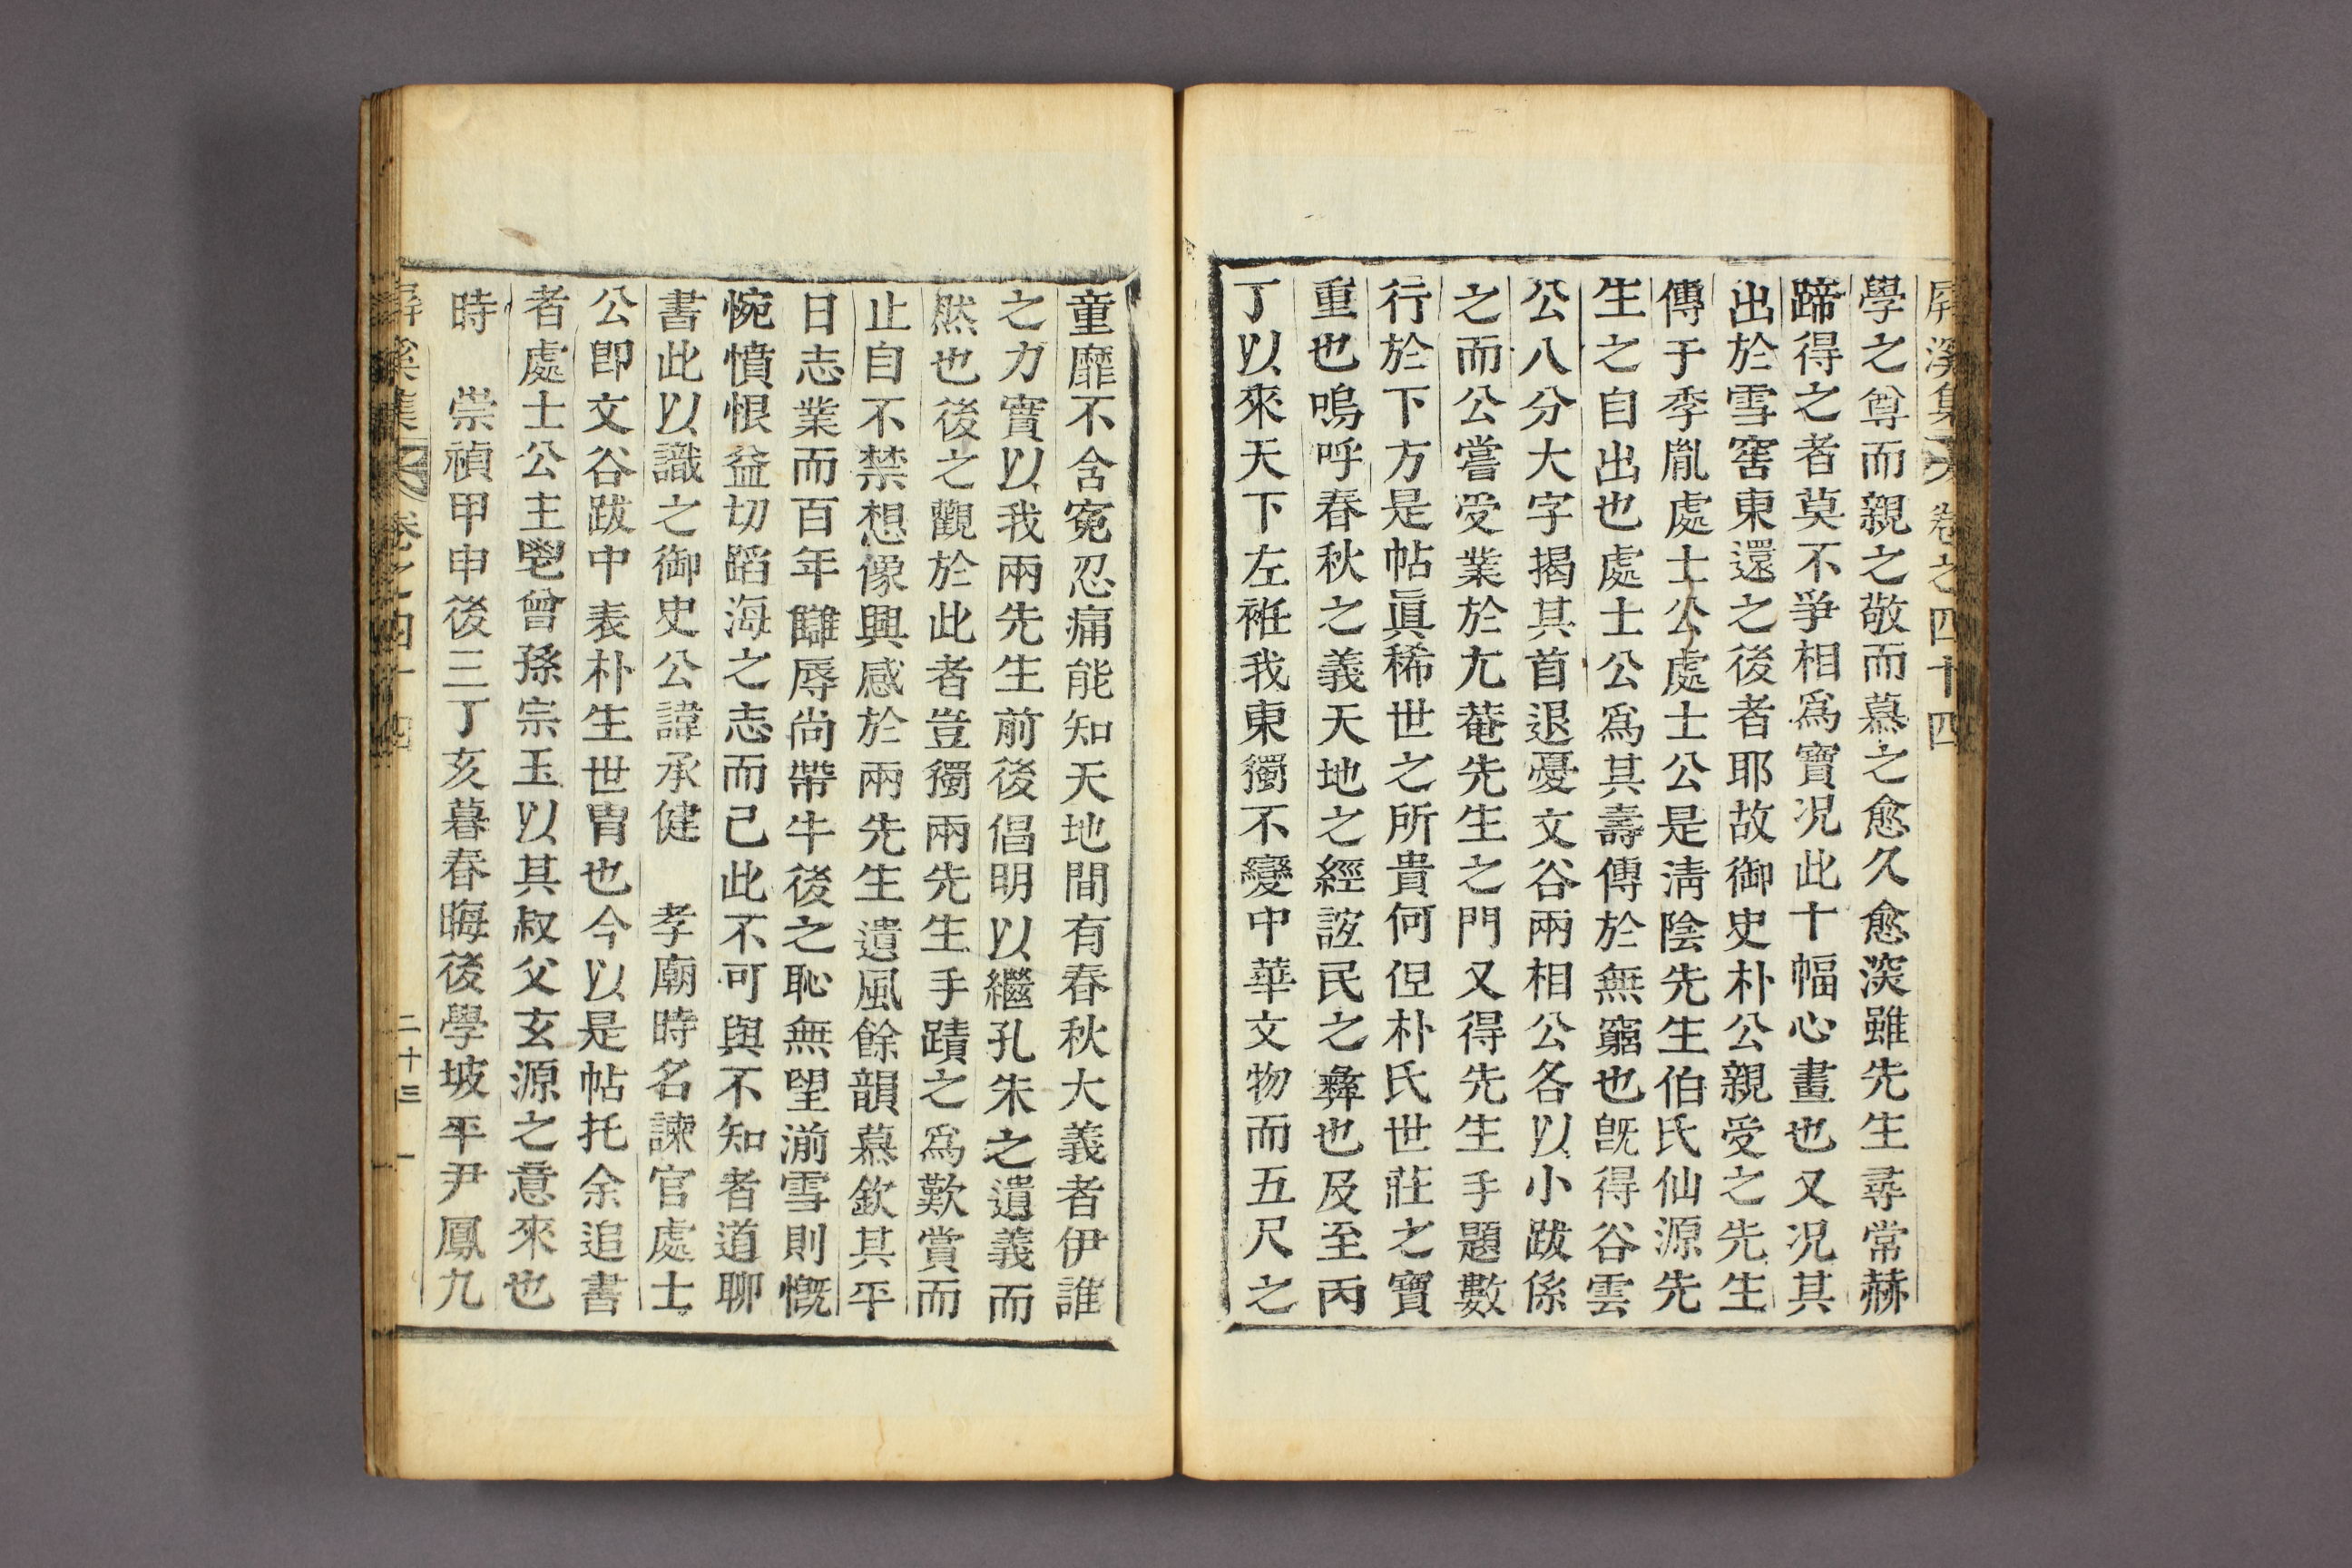 屛溪集 卷之四十四
學之尊而親之敬而慕之愈久愈深雖先生尋常赫
蹄得之者莫不爭相爲寶况此十幅心畫也又况其
出於雪窖東還之後者耶故御史朴公親受之先生
傳于季胤處士公處士公是淸陰先生伯氏仙源先
生之自出也處士公爲其壽傳於無窮也旣得谷雲
公八分大字揭其首退憂文谷兩相公各以小跋係
之而公嘗受業於尤菴先生之門又得先生手題數
行於下方是帖眞稀世之所貴何但朴氏世莊之寶
重也嗚呼春秋之義天地之經諠民之彝也及至丙
丁以來天下左袵我東獨不變中華文物而五尺之
童靡不含寃忍痛能知天地間有春秋大義者伊誰
之力實以我兩先生前後倡明以繼孔朱之遺義而
然也後之觀於此者豈獨兩先生手蹟之爲歎賞而
止自不禁想像興感於兩先生遺風餘韻慕欽其平
日志業而百年讎辱尚帶牛後之恥無望湔雪則慨
惋憤恨益切蹈海之志而已此不可與不知者道聊
書此以識之御史公諱承健 孝廟時名諫官處士
公卽文谷跋中表朴生世胄也今以是帖托余追書
者處士公主鬯曾孫宗玉以其叔父玄源之意來也
時 崇禎甲申後三丁亥暮春晦後學坡平尹鳳九
屛溪集 卷之四十四 二十三